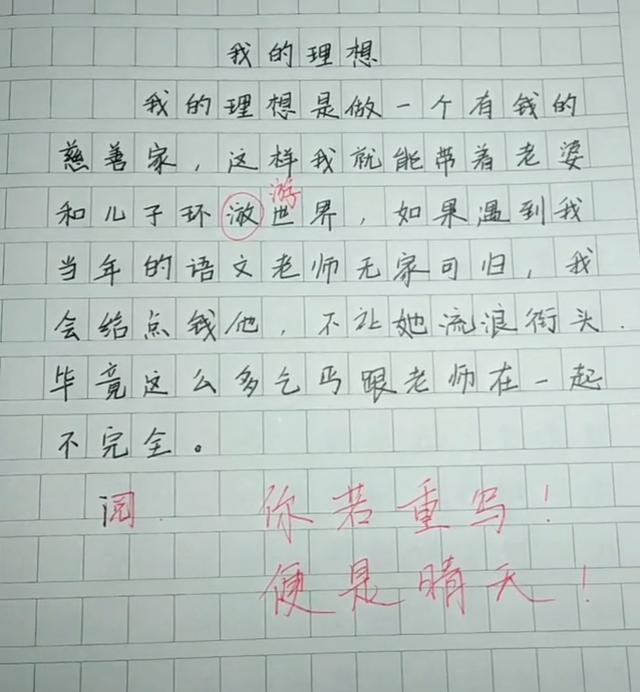 我的理想
我的理想是做一个有钱的
慈善家，这样我就能带着老婆
游
和儿子环世界，如果遇到我
当年的语文老师无家可归，我
会给点钱他，不让她流浪街头.
毕竟这么多乞丐跟老师在一起
不完全。
阅. 你若重写！
便是晴天！